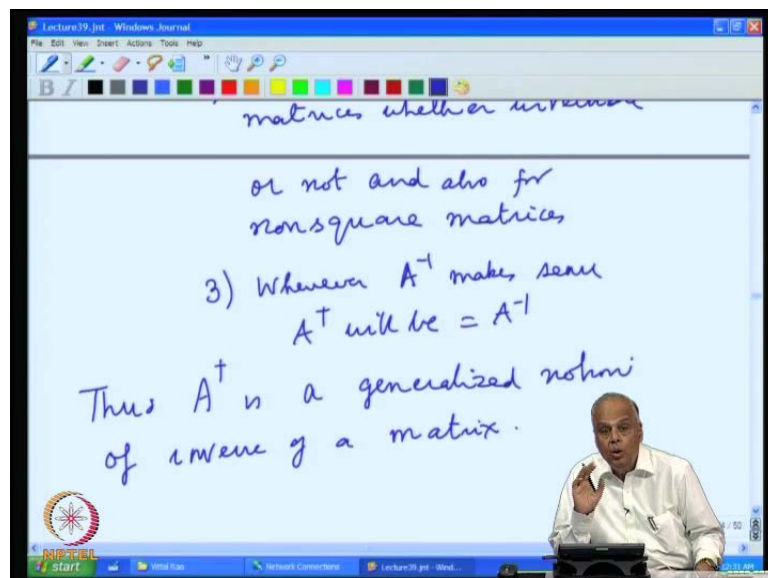 Lecture39.jnt - Windows Journal
File Edit View Insert Actions Tools Help
B I
matrices whether
or not and also for
nonsquare matrices
3) Whenever A⁻¹ makes sense
A† will be = A⁻¹
Thus A† is a generalized notion
of inverse of a matrix.
/ 50
NPTEL
start Vittal Rao Network Connections Lecture39.jnt - Wind... 12:31 AM